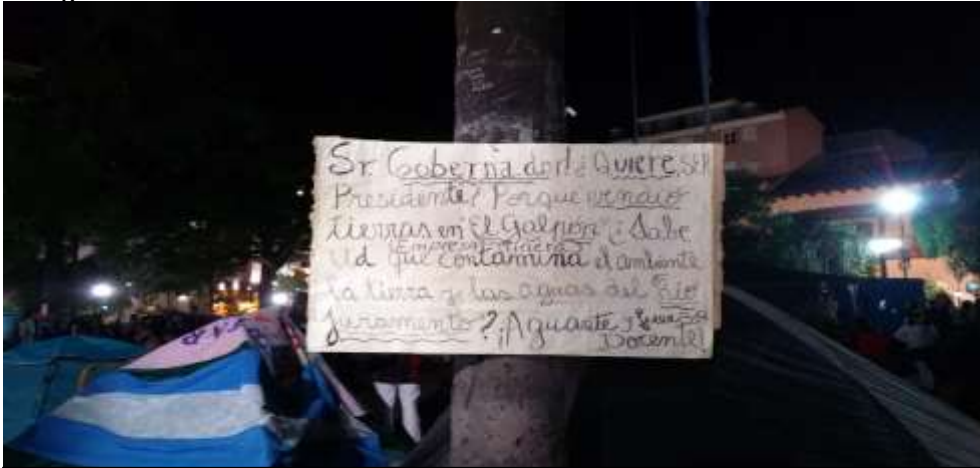 Sr. Gobernador! ¿Quiere ser
Presidente? Porque
tierras en "El Galpón" ¿Sabe
Empresa
Ud que contamina el ambiente
la tierra y las aguas del Río
Juramento? ¡Aguante
Docente!